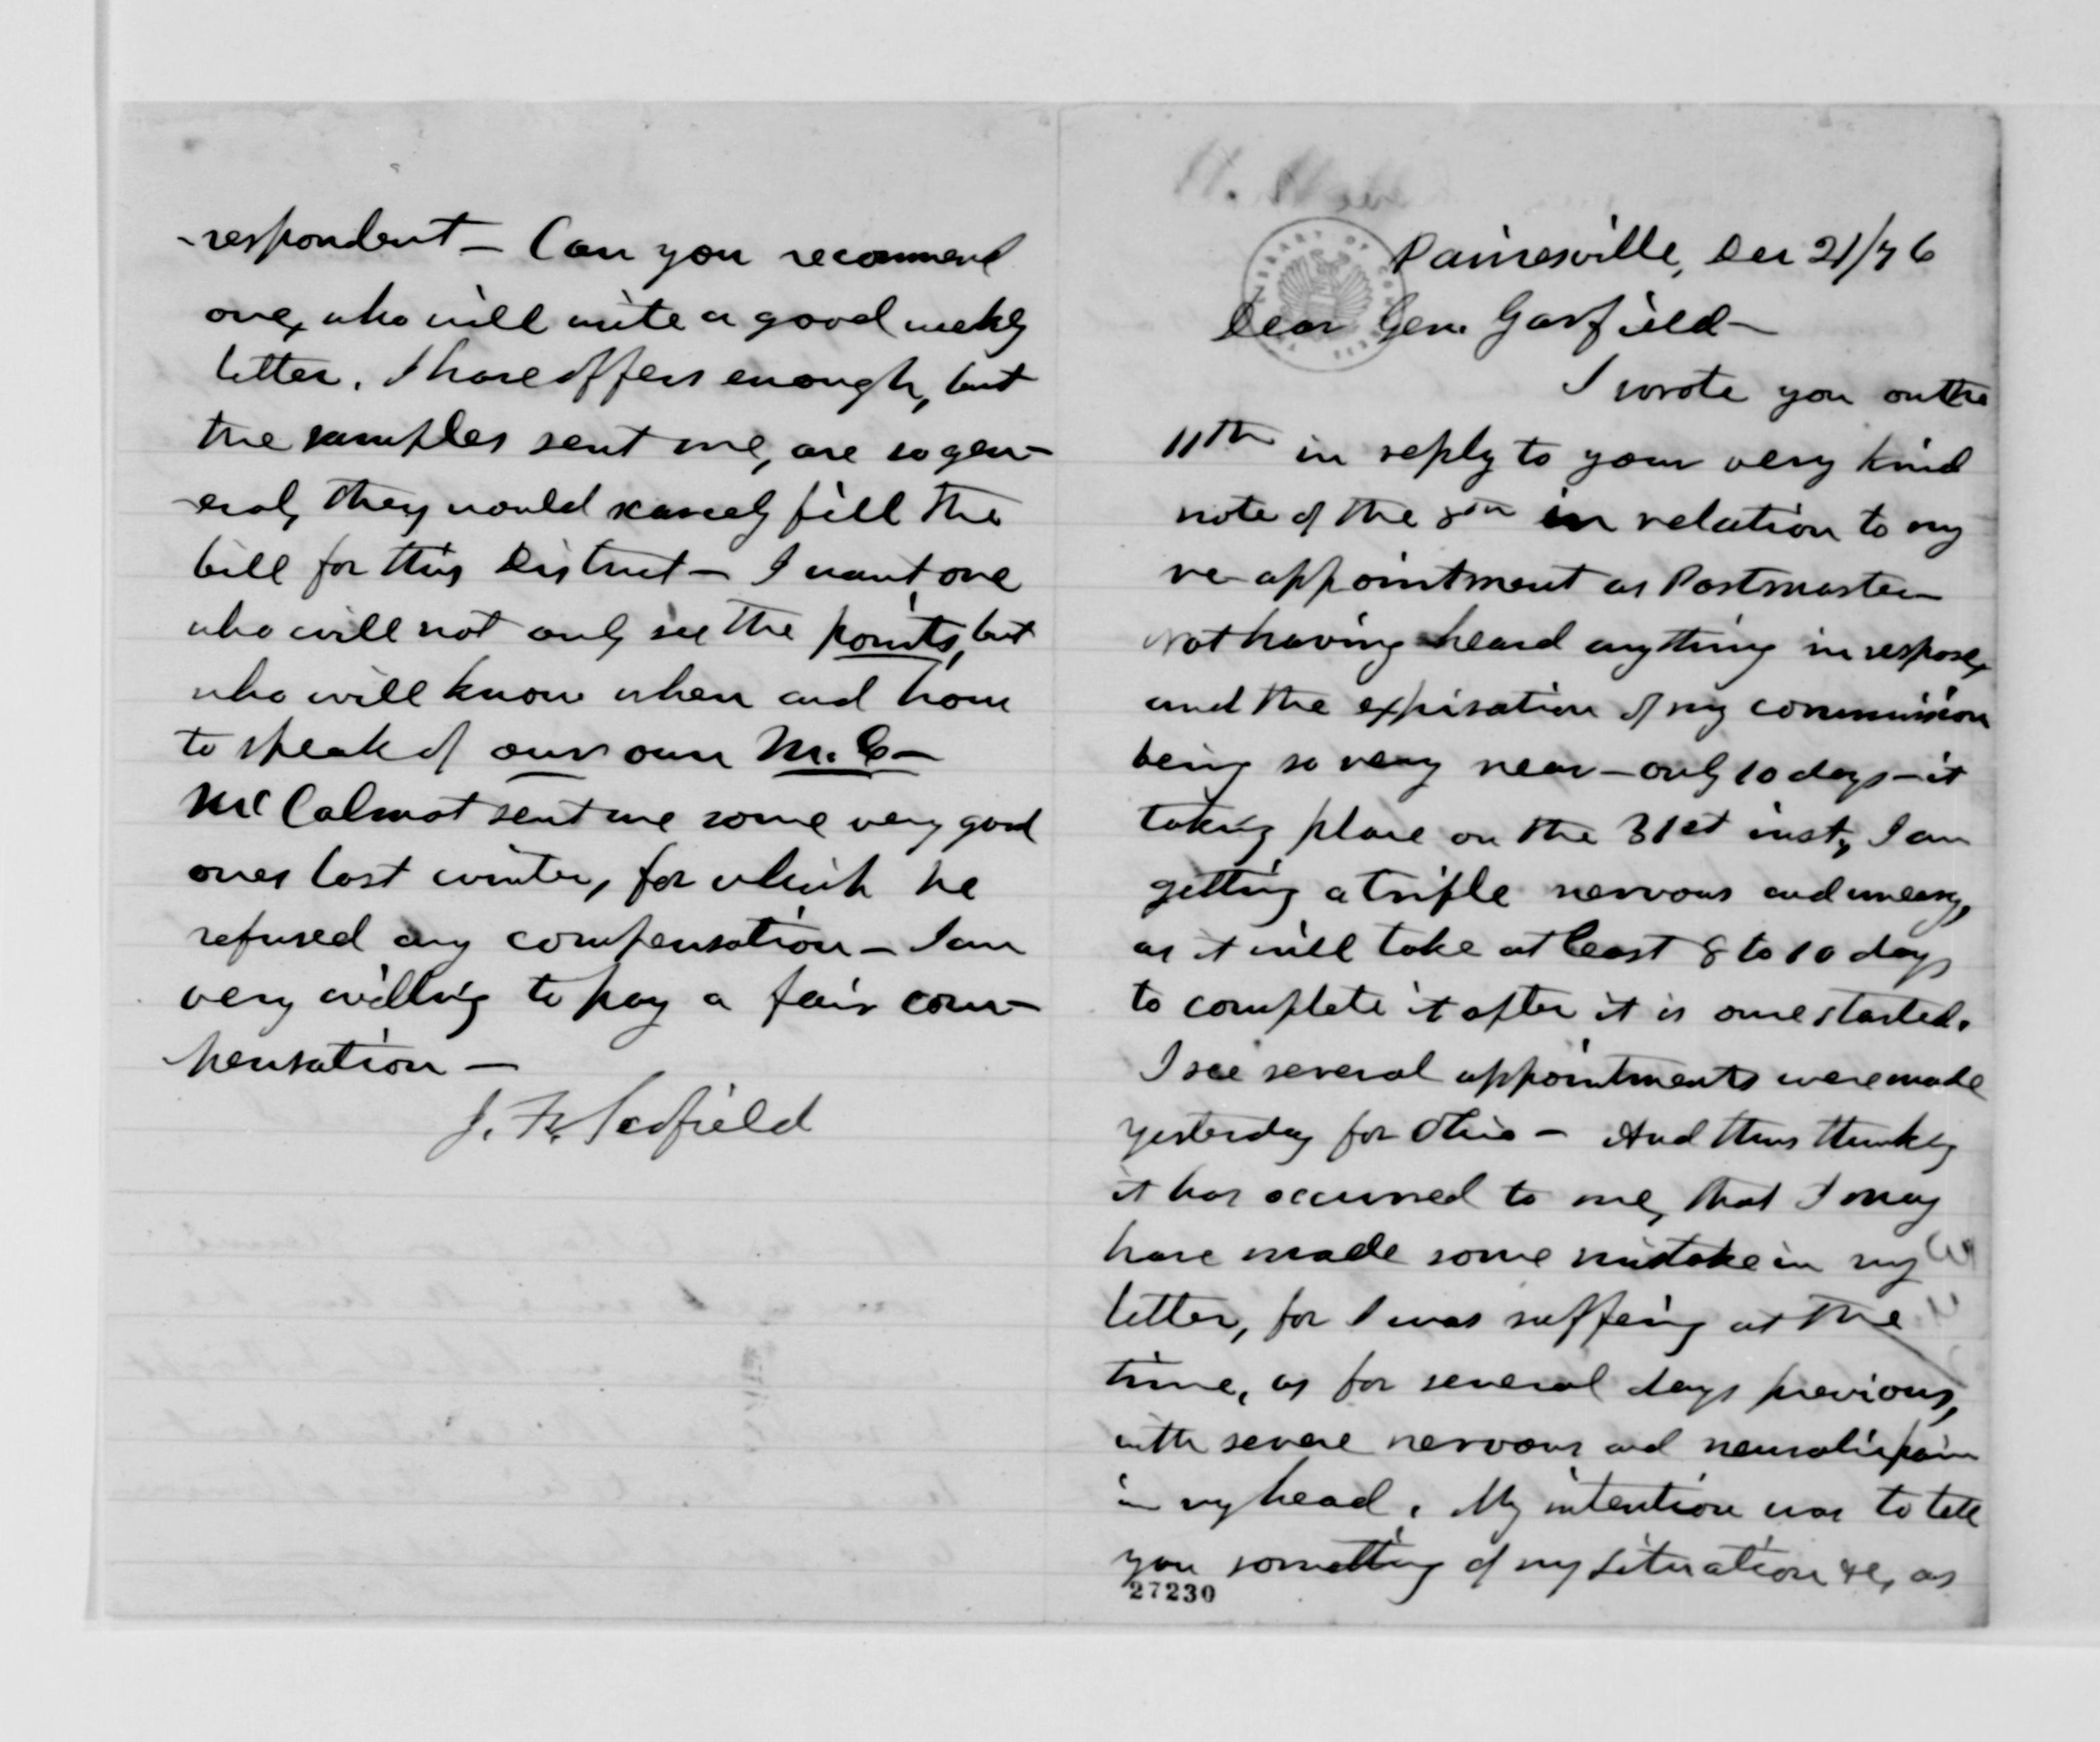 -respondent - Can you recommend
one, who will write a good weekly
letter. I have offers enough, but
the samples sent me, are so gen-
-eral, they would scarcely fill the
bill for this District - I want one
who will not only see the points, but
who will know when and how
to speak of our own M.C-
McCalmot sent me some very good
ones last winter, for which he
refused any compensation - I am
very willing to pay a fair com-
pensation -
J. F. Scofield
Painesville, Dec 21/76
Dear Gen. Garfield -
I wrote you on the
11th in reply to your very kind
note of the 8th in relation to my
re-appointment as Postmaster
Not having heard anything in respose,
and the expiration of my commission
being so very near - only 10 days - it
taking place on the 31st inst, I am
getting a trifle nervous and uneasy,
as it will take at least 8 to 10 days
to complete it after it is once started.
I see several appointments were made
yesterday for Ohio - And thus thinking
it has occurred to me, that I may
have made some mistake in my
letter, for I was suffering at the
time, as for several days previous,
with severe nervous and neuralic pain
in my head. My intention was to tell
you something of my situation &c, as
27230